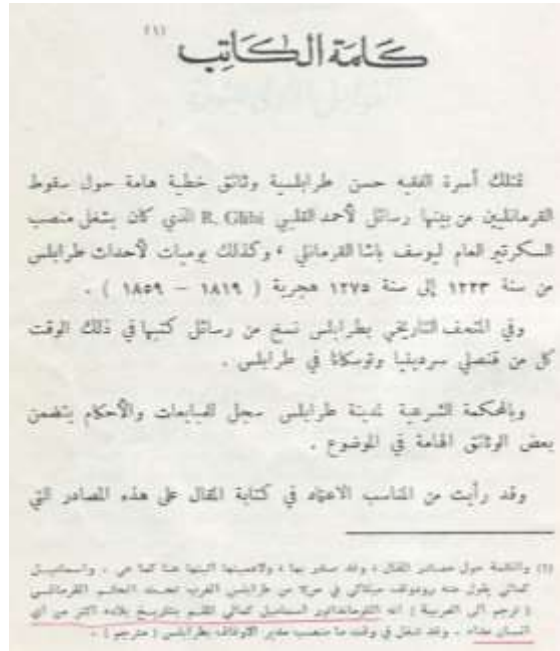 (١)
كلمة الكاتب
تمتلك أسرة الفقيه حسن طرابلسية وثائق خطية هامة حول سقوط
القرمانليين من بينها رسائل لأحمد القلبي R. Ghibi الذي كان يشغل منصب
السكرتير العام ليوسف باشا القرمانلي ، وكذلك يوميات لأحداث طرابلس
من سنة ١٢٣٣ إلى سنة ١٢٧٥ هجرية ( ١٨١٩ – ١٨٥٩ ) .
وفي المتحف التاريخي بطرابلس نسخ من رسائل كتبها في ذلك الوقت
كل من قنصلي سردينيا وتوسكانا في طرابلس .
وبالمحكمة الشرعية لمدينة طرابلس سجل للمبايعات والأحكام يتضمن
بعض الوثائق الهامة في الموضوع .
وقد رأيت من المناسب الاعتماد في كتابة المقال على هذه المصادر التي
(١) والكلمة حول مصادر المقال ، وقد صدر بها ، ولاهميتها أثبتها هنا كما هي . واسماعيل
كمالي يقول عنه رودولف ميكاكي في طرابلس الغرب تحت الحكم القرمانلي
( ترجم الى العربية ) انه القومندانور اسماعيل كمالي الملم بتاريخ بلاده اكثر من أي
انسان عداه . وقد شغل في وقت ما منصب مدير الاوقاف بطرابلس ( مترجم ) .